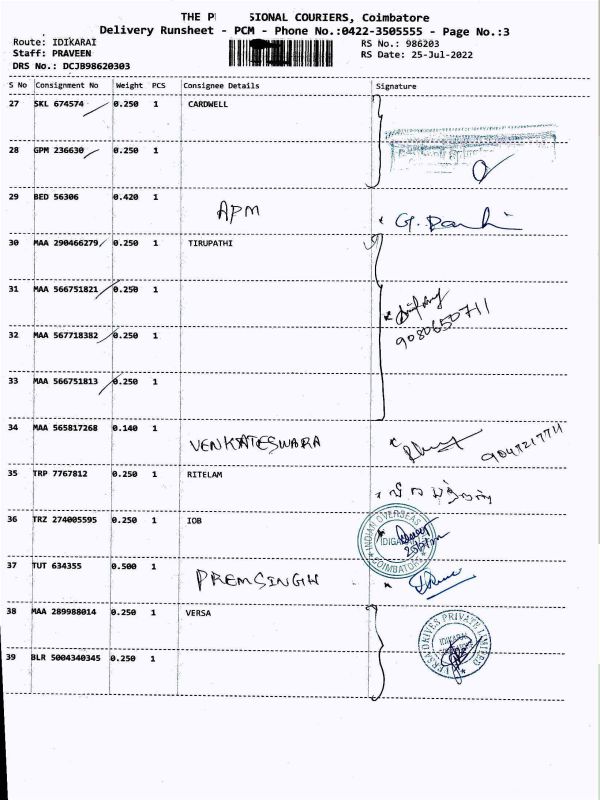 THE P SIONAL COURIERS, Coimbatore
Delivery Runsheet - PCM - Phone No.:0422-3505555 - Page No.:3
Route: IDIKARAI RS No.: 986203
Staff: PRAVEEN RS Date: 25-Jul-2022
DRS No.: DCJB98620303
S No Consignment No Weight PCS Consignee Details Signature
27 SKL 674574 0.250 1 CARDWELL
28 GPM 236630 0.250 1
29 BED 56306 0.420 1 APM
30 MAA 290466279 0.250 1 TIRUPATHI
31 MAA 566751821 0.250 1
9080650711
32 MAA 567718382 0.250 1
33 MAA 566751813 0.250 1
34 MAA 565817268 0.140 1 VENKATESWARA
35 TRP 7767812 0.250 1 RITELAM
36 TRZ 274005595 0.250 1 IOB
INDIAN OVERSEAS
COIMBATORE
37 TUT 634355 0.500 1 PREMSINGH
38 MAA 289988014 0.250 1 VERSA
VERSA DRIVES PRIVATE LIMITED
IDIKARAI
39 BLR 5004340345 0.250 1